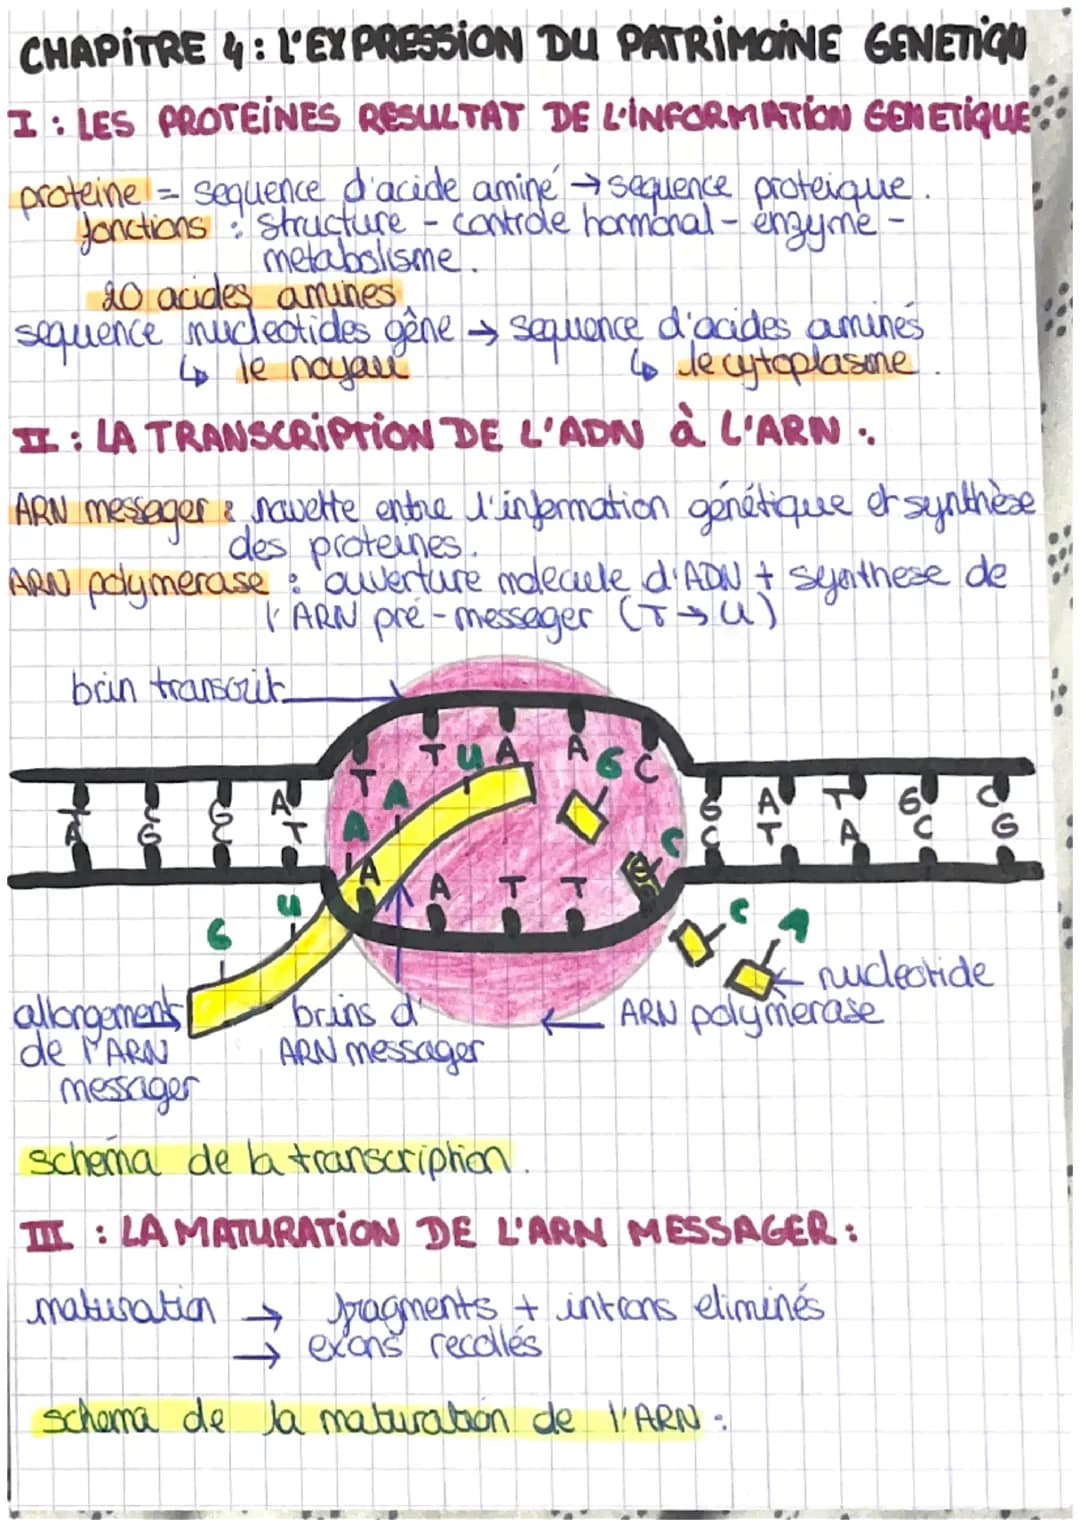 CHAPITRE 4 : L'EXPRESSION DU PATRIMOINE GENETIQU
I : LES PROTEINES RESULTAT DE L'INFORMATION GENETIQUE
proteine = sequence d'acide aminé → sequence proteique.
fonctions : structure - controle hormonal - enzyme -
metabolisme.
20 acides amines
sequence nucleotides gène → sequence d'acides aminés
↳ le noyau ↳ le cytoplasme.
II : LA TRANSCRIPTION DE L'ADN à L'ARN :
ARN messager : navette entre l'information génétique et synthèse
des proteines.
ARN polymerase : ouverture molecule d'ADN + synthese de
l'ARN pré-messager (T → U)
brin transcrit
T U A A G C
T A
T C G A G A T G C
A G C T A C T A C G
A A T T C
G U C A
nucleotide
allongements brins d' ARN polymerase
de l'ARN ARN messager
messager
schema de la transcription.
III : LA MATURATION DE L'ARN MESSAGER :
maturation → fragments + introns eliminés
→ exons recollés
schema de la maturation de l'ARN :